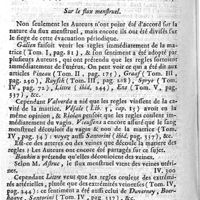 Sur le flux menstruel.
Non seulement les Auteurs n'ont point été d'accord sur la
nature du flux menstruel, mais encore ils ont été divisés sur
le siege de cette évacuation périodique.
Galien faisoit venir les regles immédiatement de la ma-
trice (Tom. I, pag. 81), & son sentiment a été adopté par
plusieurs Auteurs, qui ont prétendu que les regles sortoient
immédiatement de l'utérus. On peut voir ce qui a été dit aux
articles (Tom. II, pag. 175), Graaf (Tom. III,
pag. 230), Ruysch (Tom. III, pag. 
pag. 72), Littre (ibid. pag. 244), (Tom. V,
pag. 537), &c.
Cependant Valverda a nié que les regles vinssent de la ca-
vité de la matrice, avoit eu la même
opinion, & Riolan pensoit que les regles couloient immédia-
tement du vagin. Vieussens a encore assuré que le sang mens-
truel découloit du vagin & non de la matrice (Tom.
IV, pag. 34): voyez aussi Santorini (ibid. pag. 357), &c.
Est-ce des arteres ou des veines que dépend l'origine des
regles? Les Auteurs ont encore été partagés sur ce sujet.
Bauhin a prétendu qu'elles découloient des veines.
Selon M. Astruc, le flux menstruel vient des veines utéri-
nes. IV. 300
Cependant Littre veut que les regles coulent des extrémi-
tés artérielles, plutôt que des extrémités veineuses (Tom. IV,
pag. 244): ce sentiment a été aussi celui de Duverney, Boer-
haave, Santorini (Tom. IV, pag. 357), &c.